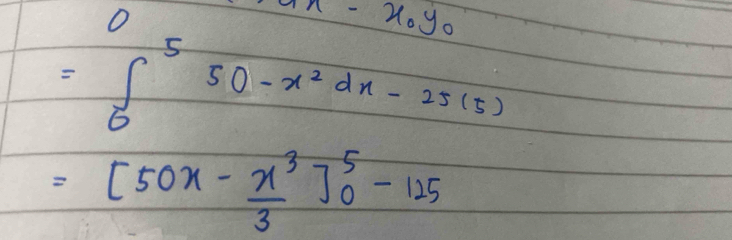 0 - x₀y₀
= ∫₀⁵ 50 - x² dx - 25(5)
= [50x - x³/3]₀⁵ - 125